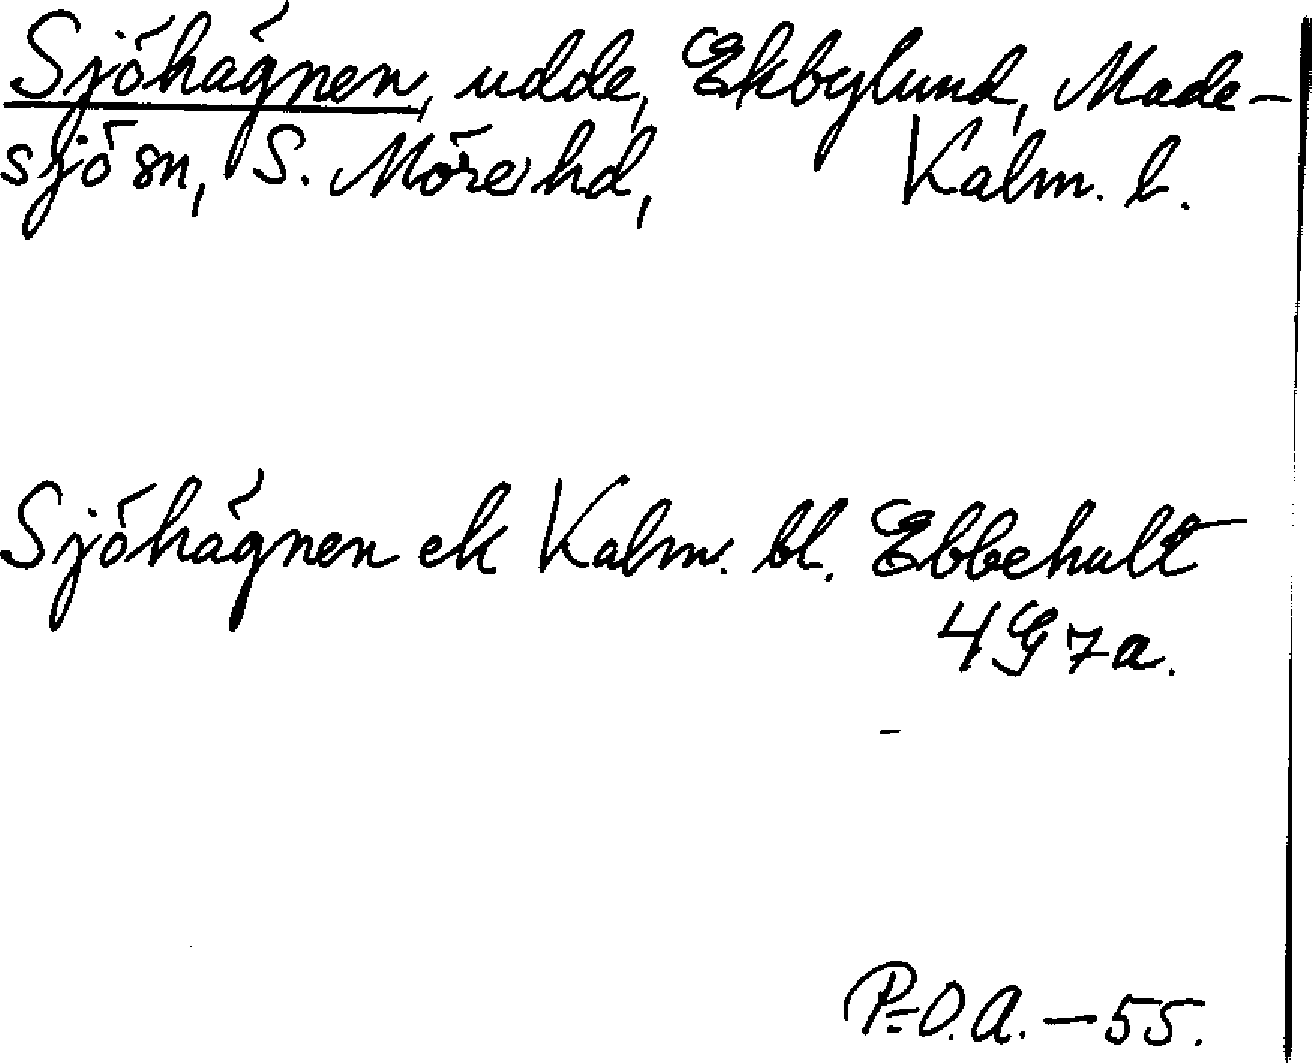 Sjöhägnen, udde, Ekbylund, Made-
sjö sn, S. Möre hd, Kalm. l.
Sjöhägnen ek Kalm. bl. Ebbehult
4G7a.
P.-O.A. - 55.